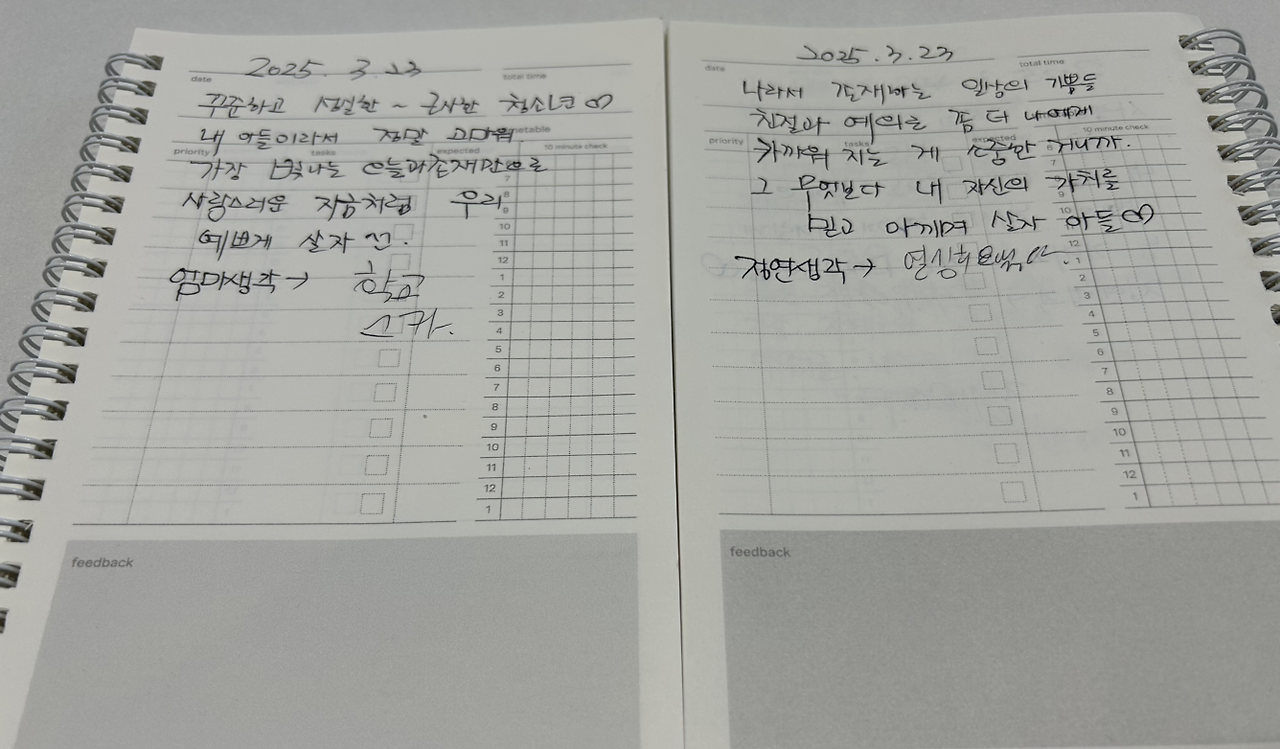 2025. 3. 23
date
total time
꾸준하고 성실한 ~ 근사한 청소년
내 아들이라서 정말 고마워
timetable
priority
tasks
expected
10 minute check
가장 빛나는 오늘과 존재만으로
사랑스러운 지금처럼 우리
예쁘게 살자
엄마생각 → 학교
스카.
7
8
9
10
11
12
1
2
3
4
5
6
7
8
9
10
11
12
1
feedback
2025. 3. 23
date
total time
나라서 존재하는 일상의 기쁨들
친절과 예의를 좀 더 나에게
priority
tasks
expected
10 minute check
가까워 지는 게 소중한 거니까.
그 무엇보다 내 자신의 가치를
믿고 아끼며 살자 아들
정연생각 →
6
7
8
9
10
12
1
2
3
4
5
6
7
8
9
10
11
12
1
feedback